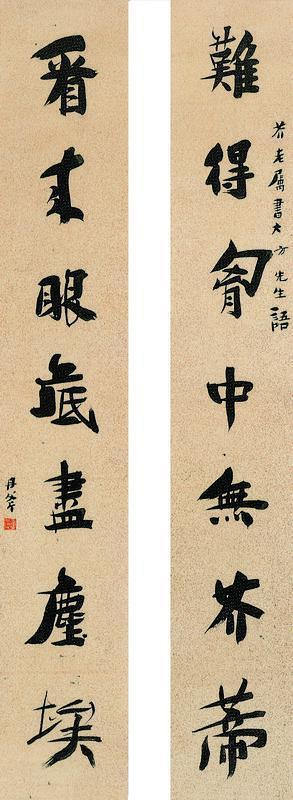 難得胷中無芥蒂
芥老屬書大方先生語
看来眼底盡塵埃